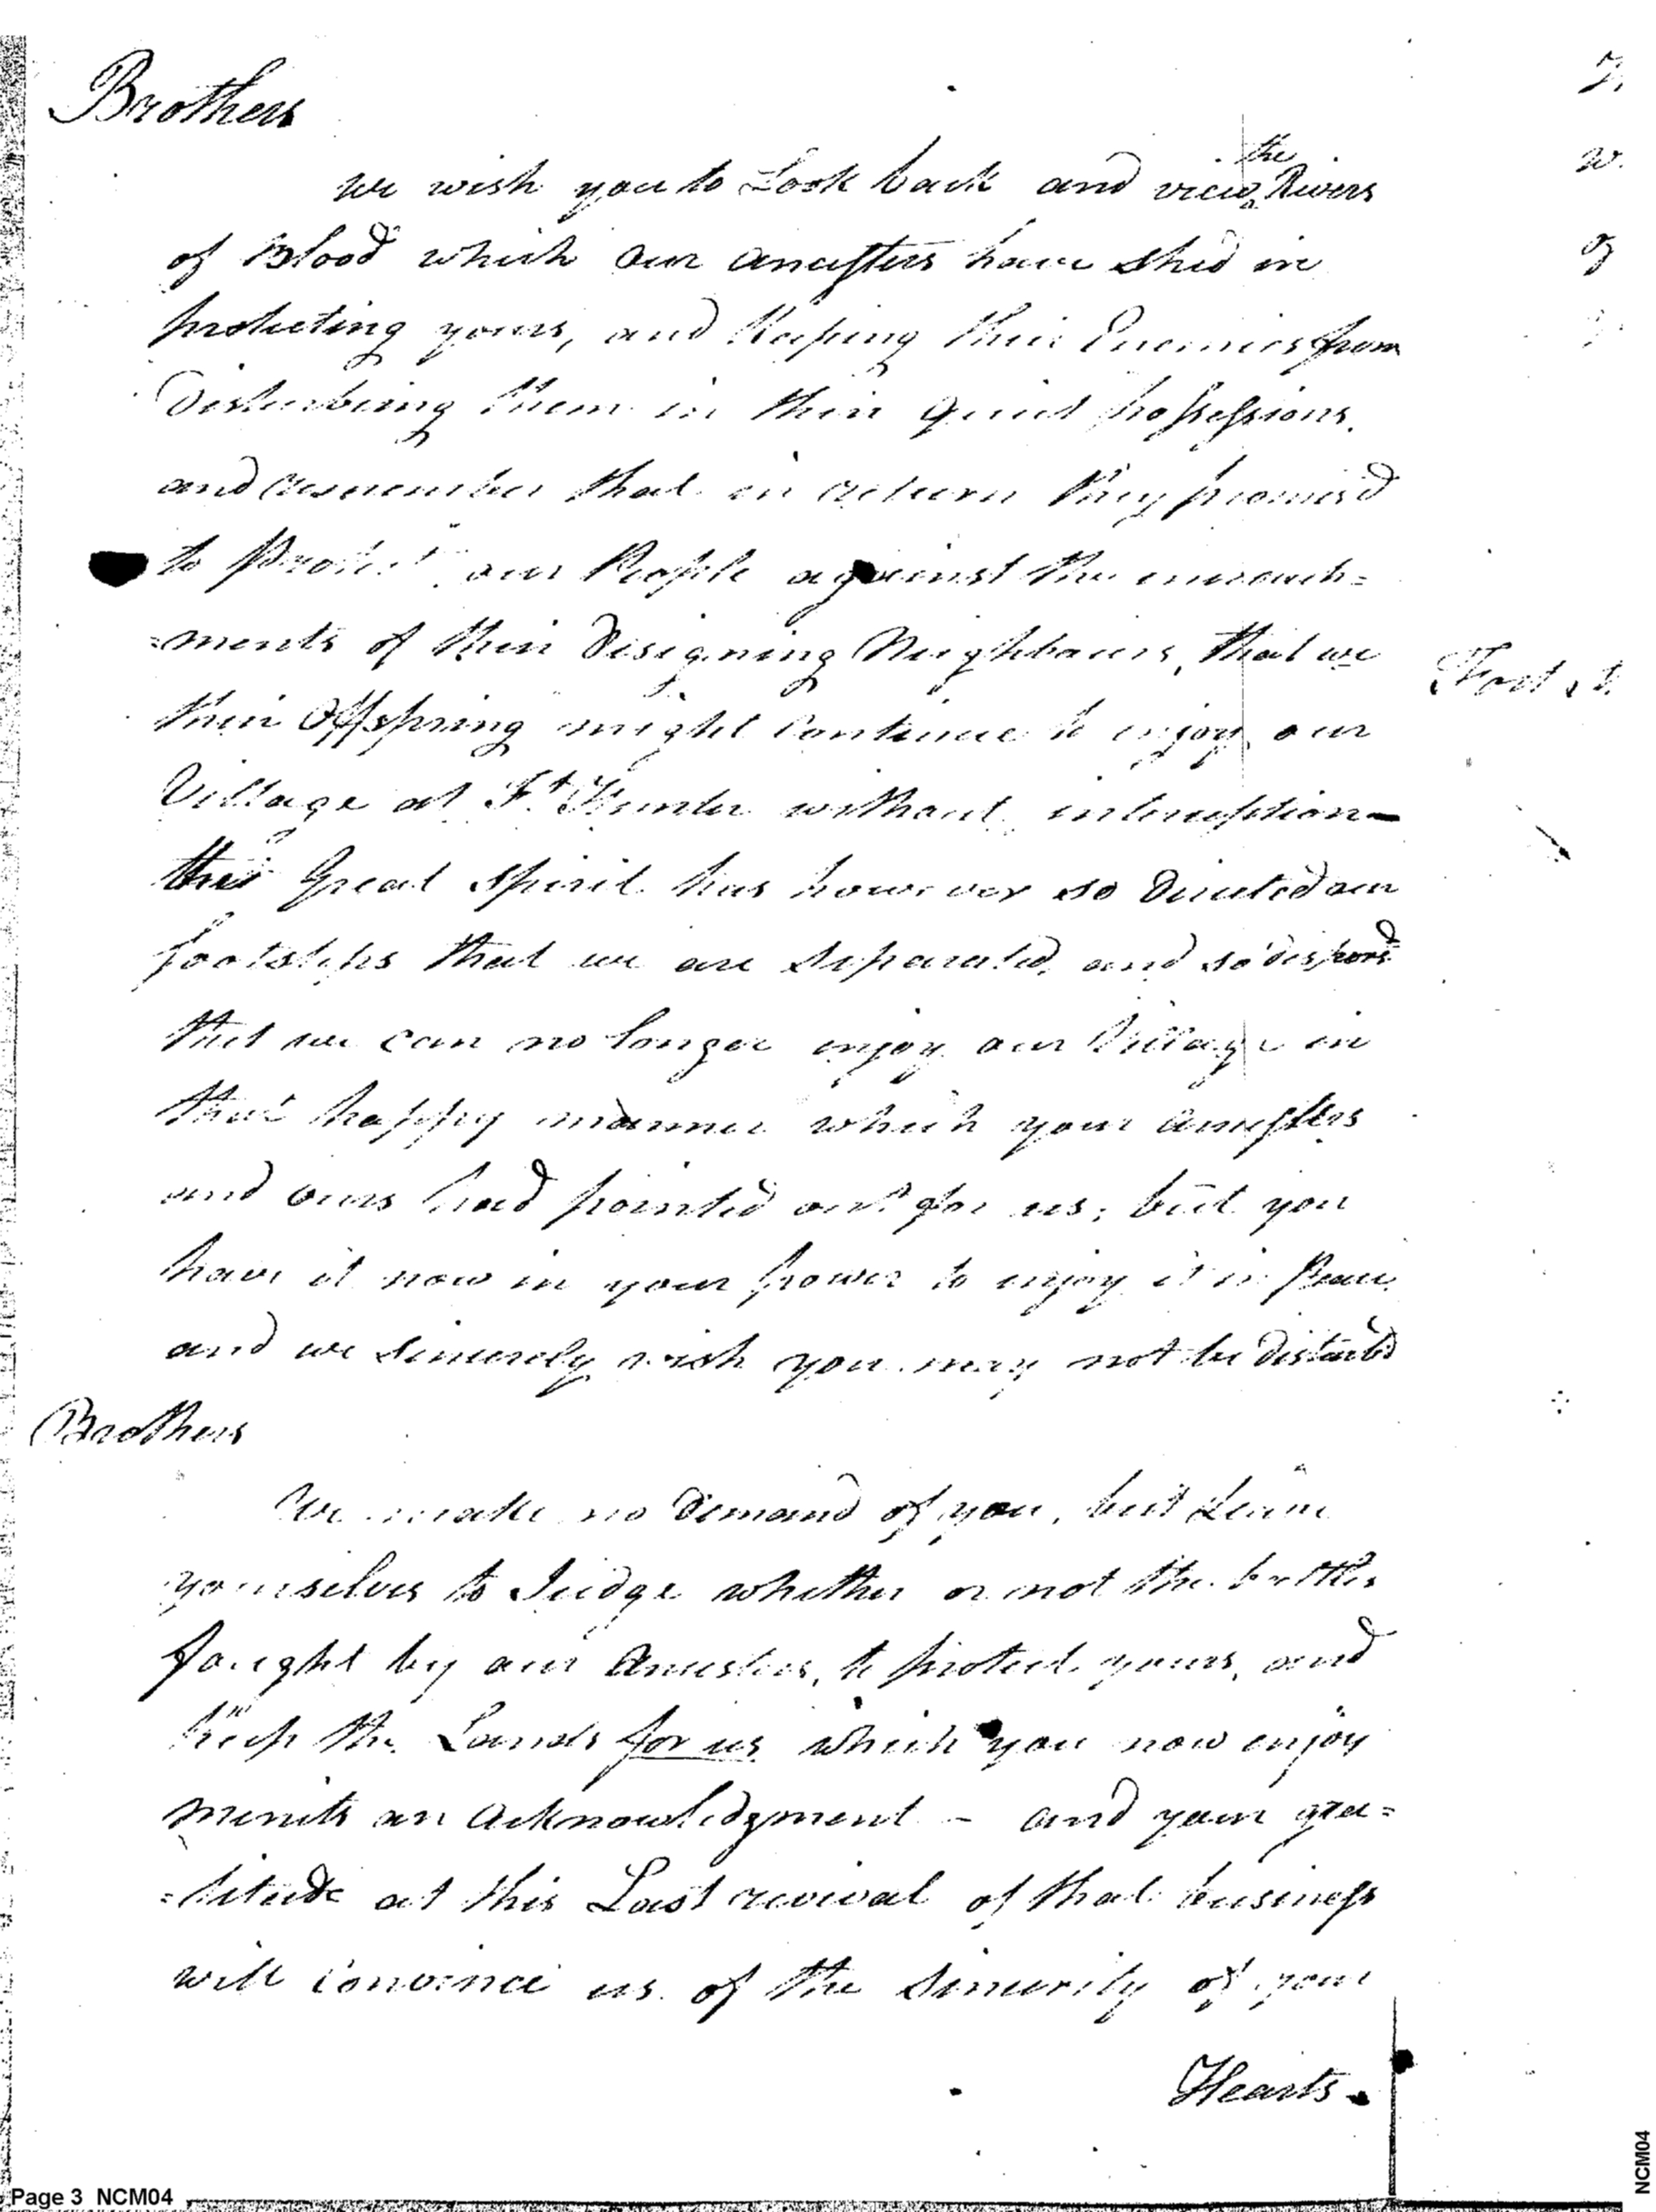 Brothers
We wish you to Look back and view the Rivers
of Blood which our ancestors have shed in
protecting yours, and Keeping their Enemies from
Disturbing them in their quiet possessions.
and remember that in return they promis'd
to Protect our People against the encroach=
=ments of their Designing Neighbours, that we
their Offspring might continue to enjoy our
Village at Ft Hunter without interruption—
the Great Spirit has however so Directed our
footsteps that we are separated, and so dispers'd
that we can no longer enjoy our Village in
that happy manner which your ancestors
and ours had pointed out for us; but you
have it now in your power to enjoy it in Peace
and we sincerely wish you may not be Disturb'd
Brothers
We make no Demand of you, but Leave
yourselves to Judge whether or not the battles
fought by our Ancestors, to protect yours, and
Keep the Lands for us which you now enjoy
merits an Acknowledgment – and your gra=
=titude at this Last revival of that business
will convince us of the Sincerity of your
Hearts.
Page 3 NCM04
NCM04